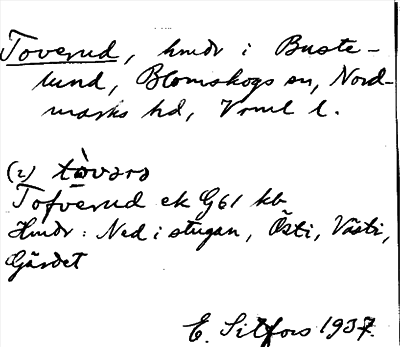 Toverud, hmdr i Buste-
lund, Blomskogs sn, Nord-
marks hd, Vrml l.
(2) tòvərə
Tofverud ek G61 kb
Hmdr: Ned i stugan, Östi, Västi,
Gärdet
E. Silfors 1937.